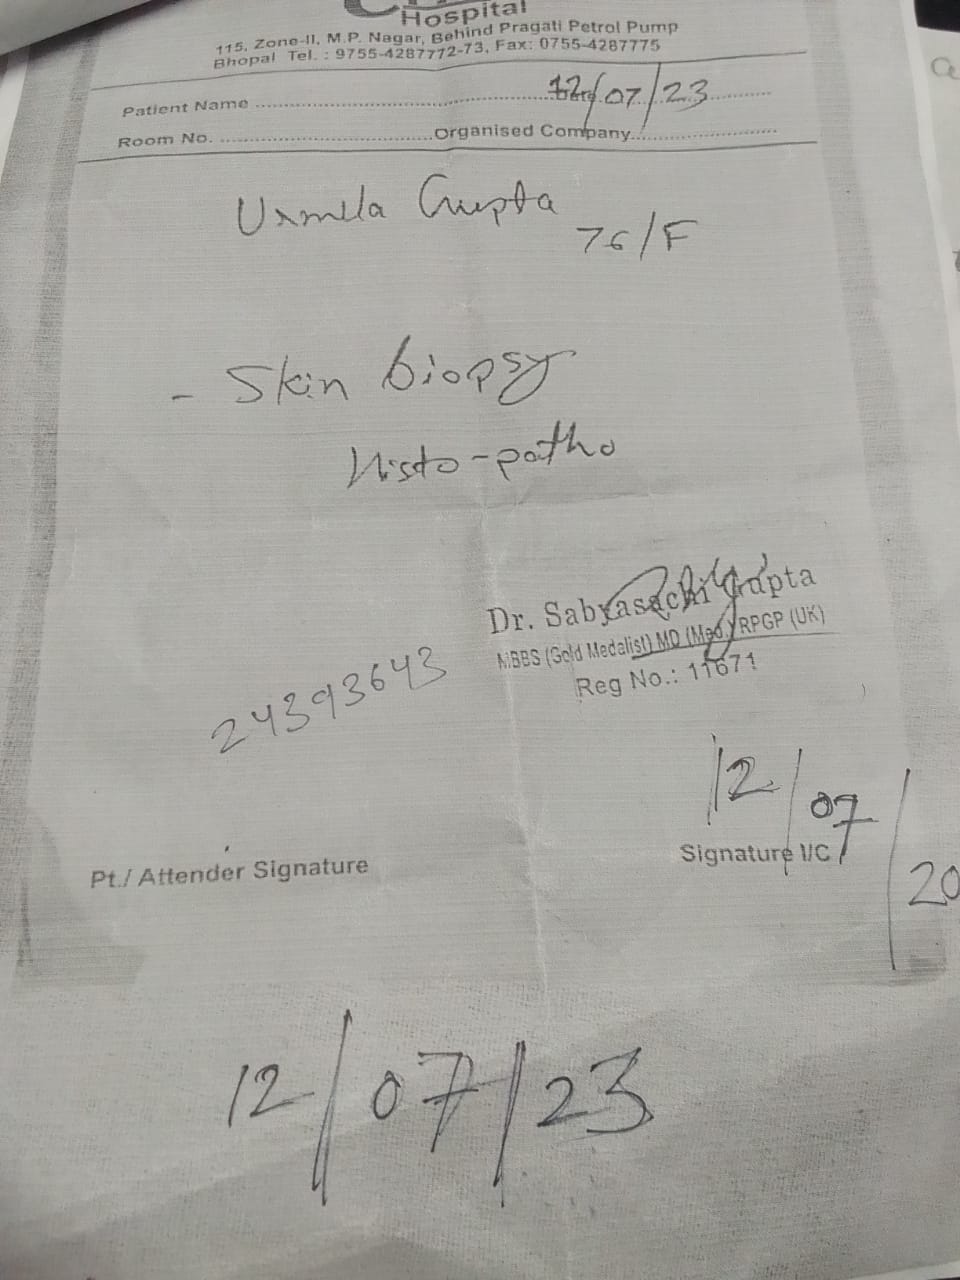 Hospital
115, Zone-II, M.P. Nagar, Behind Pragati Petrol Pump
Bhopal Tel. : 9755-4287772-73, Fax: 0755-4287775
Patient Name
12/07/23
Room No.
Organised Company
Urmila Gupta
76/F
- Skin biopsy
Histo-patho
Dr. Sabyasachi Gupta
MBBS (Gold Medalist) MD (Med.) RPGP (UK)
Reg No.: 11671
24393643
12/07/20
Signature I/C
Pt./ Attender Signature
12/07/23